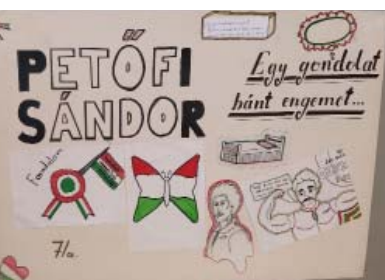 PETŐFI
SÁNDOR
Egy gondolat
bánt engemet...
Forradalom
7/a.